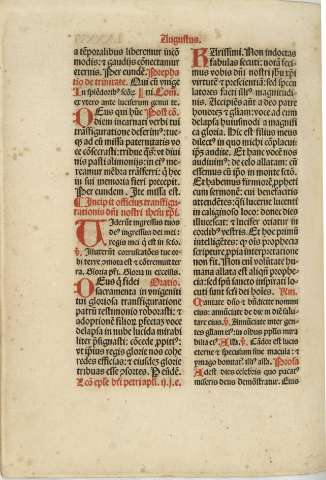 Augustus.
a tēporalibus liberemur incō
modis: z gaudijs cōnectamur
eternis. Per eundē. Prepha
tio de trinitate. Qui cū vnige
In splēdorib' scōr. Uni. Com.
ex vtero ante luciferum genui te.
Deus qui hūc Postcō.
diem incarnati verbi tui
transfiguratione
ad te missa paternitatis vo
ce cōsecrasti: tribue q̄s: vt diui
nis pasti alimonijs: in ei' me
reamur mēbra trāsferri: q̄ hec
in sui memoria fieri precepit.
Per eundem. Ite missa est.
Incipit officium transfigu
rationis dn̄i nostri ihesu xp̄i.
Uiderūt ingressus tuos
de' ingressus dei mei:
regis mei q̄ est in scto.
v. Illuxerūt coruscatōes tue or
bi terre: mota est z cōtremuit ter
ra. Gloria pr̄i. Gloria in excelsis.
Deus q̄ fidei Oratio.
sacramenta in vnigeniti
tui gloriosa transfiguratione
patrū testimonio roborasti: z
adoptionē filiorū pfectā voce
delapsa in nube lucida mirabi
liter p̄signasti: cōcede ppiti':
vt ipsius regis glorie nos cohe
redes efficias: z eiusdez glorie
tribuas esse cōsortes. P eundē.
Lcō eple bt̄i petri apli. ij. j. c.
Karissimi. Non indoctas
fabulas secuti: notā feci
mus vobis dn̄i nostri ihū xp̄i
virtutē z prescientiā: sed specu
latores facti illi' magnitudi
nis. Accipiēs aūt a deo patre
honorez z gloriā: voce ad eum
delapsa huiuscemodi a magnifi
ca gloria. Hic est filius meus
dilectus in quo michi cōplacui:
ipsū audite. Et hanc vocē nos
audiuim': de celo allatam: cū
essemus cū ipo in monte scto.
Et habemus firmiorē pphetī
cum sermonē: cui benefacitis
attendētes: q̄si lucerne lucenti
in caliginoso loco: donec dies
illucescat: z lucifer oriatur in
cordib' vestris. Et hoc primū
intelligētes: q̄ ois prophecia
scripture ppria interpretatione
non fit. Non eni volūtate hu
mana allata est aliqn̄ prophe
cia: sed spū sancto inspirati lo
cuti sunt sc̄i dei hoīes.
Cantate dn̄o z bn̄dicite nomini
eius: annūciate de die in diē salu
tare eius. v. Annūciate inter gen
tes gl'iam ei': in oībus pplis mira
bilia ei'. Alla. v. Cādor est lucis
eterne z speculum sine macula: z
ymago bonitat; illi'. alla. Prosa
Adest dies celebris quo pacat'
miseris deus demōstratur. Cuius